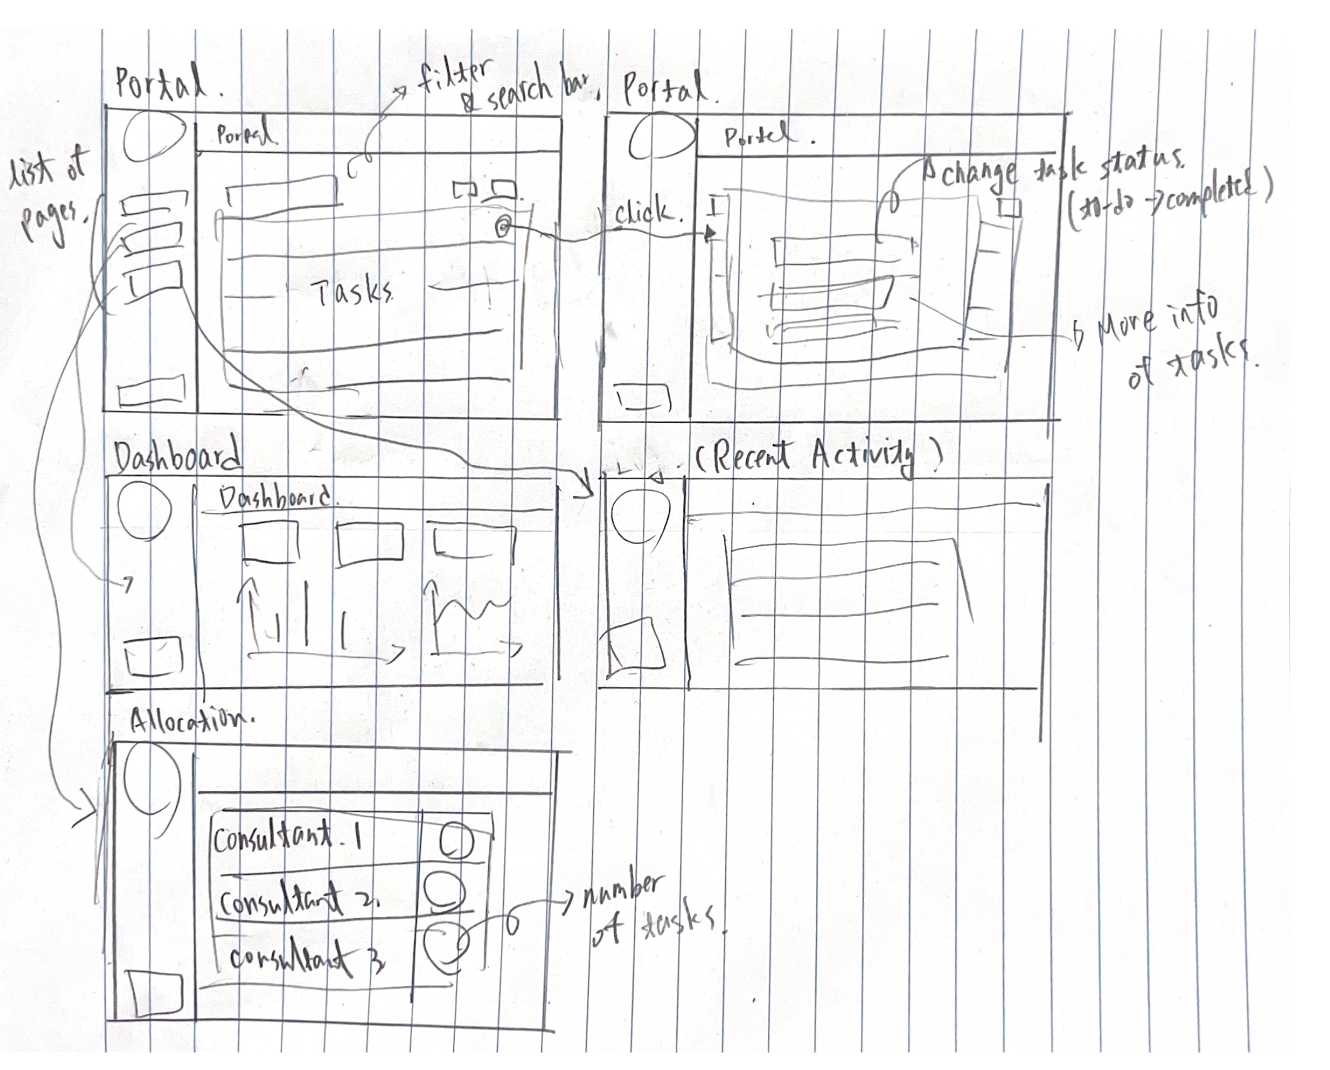 Portal.
filter
& search bar.
Portal.
list of
pages.
Portal
Portal.
change task status.
(to-do → completed)
click.
Tasks
More info
of tasks.
Dashboard
(Recent Activity)
Dashboard.
Allocation.
Consultant. 1
Consultant 2.
Consultant 3
number
of tasks.